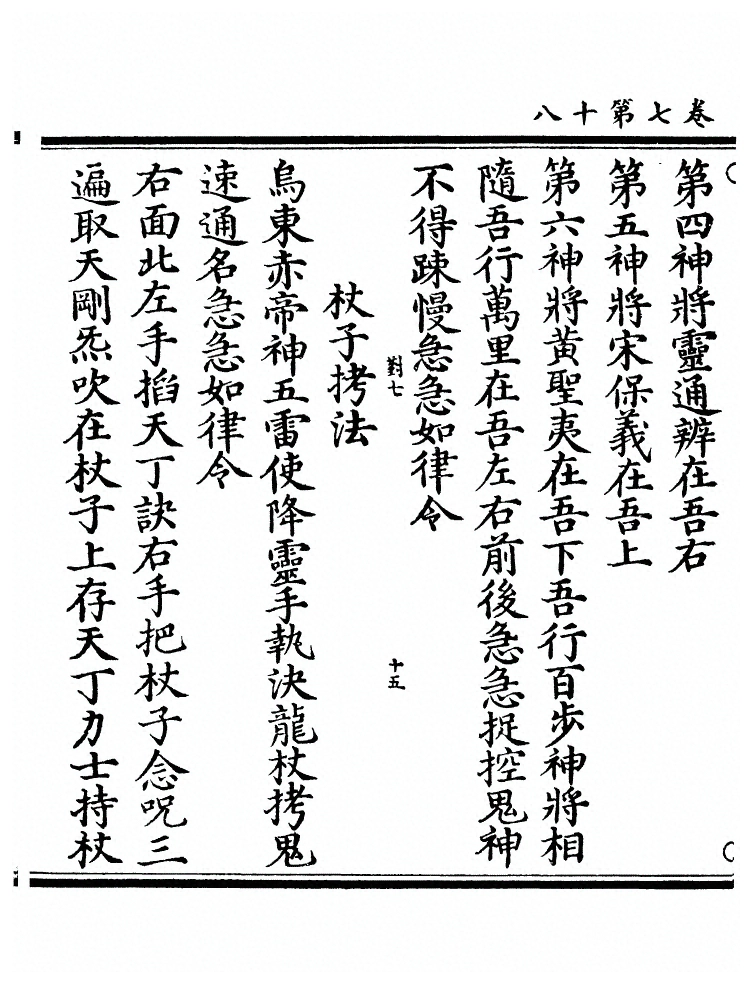 卷七第十八
第四神將靈通辨在吾右
第五神將宋保義在吾上
第六神將黄聖夷在吾下吾行百步神將相
隨吾行萬里在吾左右前後急急捉控鬼神
不得踈慢急急如律令
對七 十五
杖子拷法
烏東赤帝神五雷使降靈手執決龍杖拷鬼
速通名急急如律令
右面北左手掐天丁訣右手把杖子念呪三
遍取天剛炁吹在杖子上存天丁力士持杖